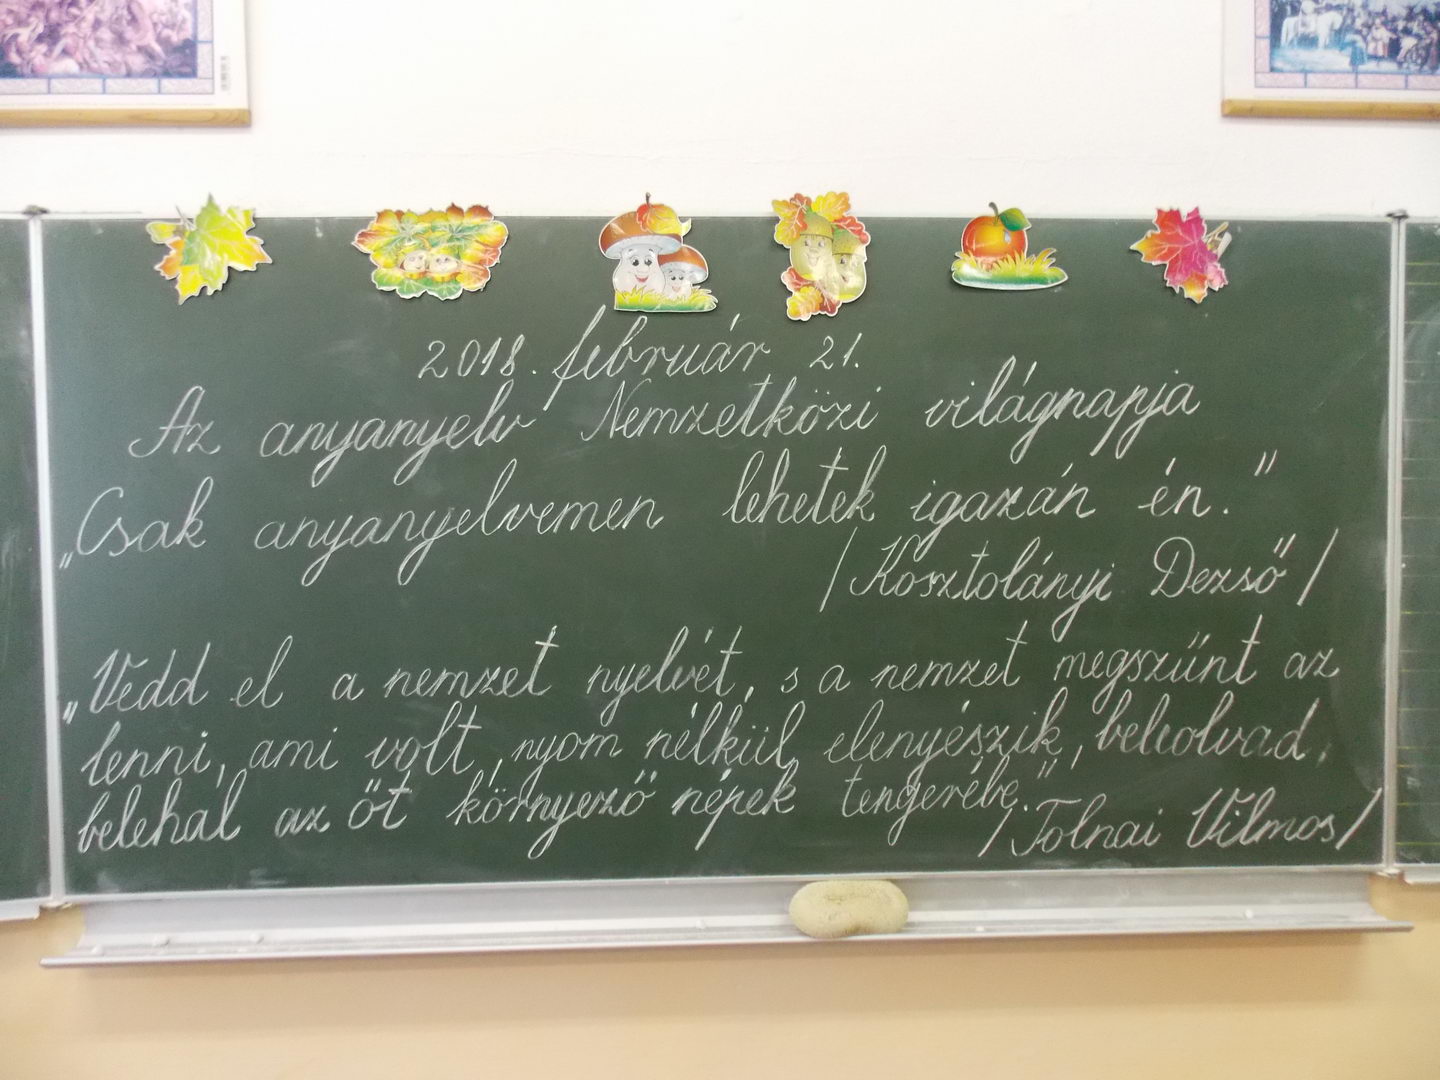 2018. február 21.
Az anyanyelv Nemzetközi világnapja
„Csak anyanyelvemen lehetek igazán én."
/Kosztolányi Dezső/
„Vedd el a nemzet nyelvét, s a nemzet megszűnt az
lenni, ami volt, nyom nélkül elenyészik, beleolvad,
belehal az őt környező népek tengerébe."
/Tolnai Vilmos/